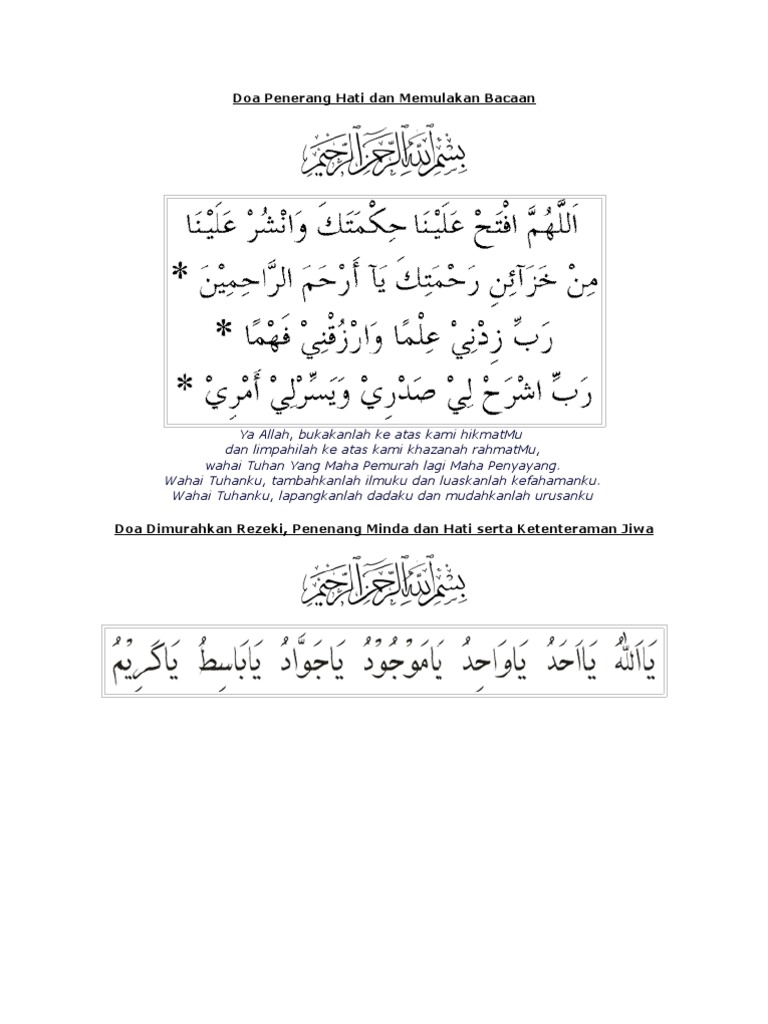 Doa Penerang Hati dan Memulakan Bacaan
بِسْمِ ٱللَّهِ ٱلرَّحْمَٰنِ ٱلرَّحِيمِ
اَللَّهُمَّ افْتَحْ عَلَيْنَا حِكْمَتَكَ وَانْشُرْ عَلَيْنَا
مِنْ خَزَآئِنِ رَحْمَتِكَ يَآ أَرْحَمَ الرَّاحِمِيْنَ *
رَبِّ زِدْنِيْ عِلْمًا وَارْزُقْنِيْ فَهْمًا *
رَبِّ اشْرَحْ لِيْ صَدْرِيْ وَيَسِّرْلِيْ أَمْرِيْ *
Ya Allah, bukakanlah ke atas kami hikmatMu
dan limpahilah ke atas kami khazanah rahmatMu,
wahai Tuhan Yang Maha Pemurah lagi Maha Penyayang.
Wahai Tuhanku, tambahkanlah ilmuku dan luaskanlah kefahamanku.
Wahai Tuhanku, lapangkanlah dadaku dan mudahkanlah urusanku
Doa Dimurahkan Rezeki, Penenang Minda dan Hati serta Ketenteraman Jiwa
بِسْمِ ٱللَّهِ ٱلرَّحْمَٰنِ ٱلرَّحِيمِ
يَااَللّٰهُ يَااَحَدُ يَاوَاحِدُ يَامَوْجُوْدُ يَاجَوَّادُ يَابَاسِطُ يَاكَرِيْمُ